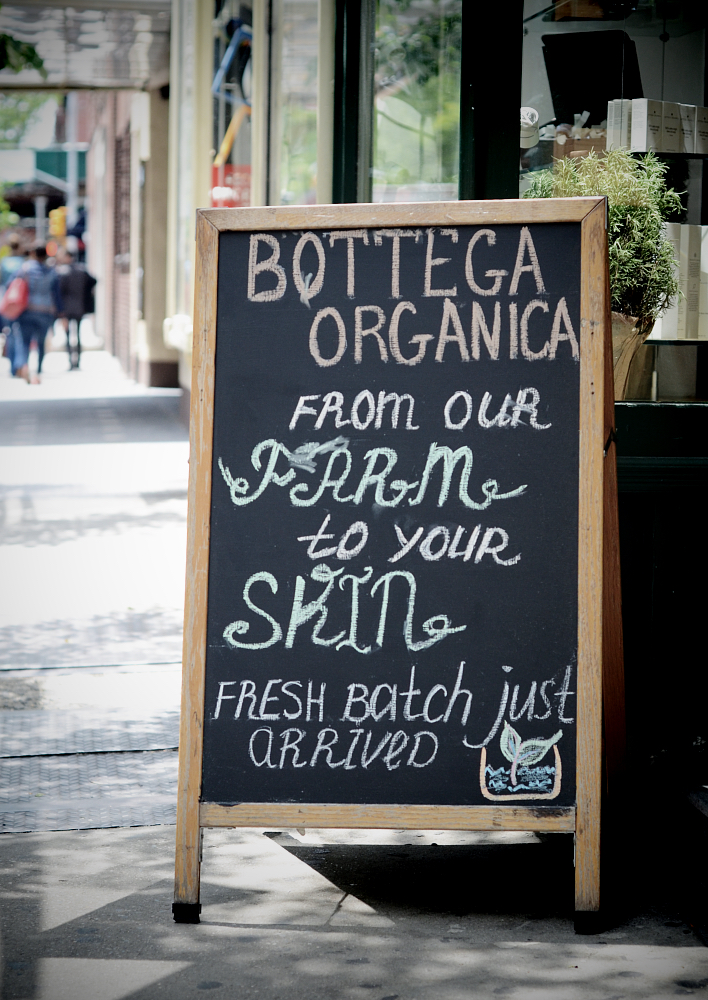 BOTTEGA
ORGANICA
FROM OUR
FARM
to YOUR
SKIN
FRESH Batch just
ARRIVED